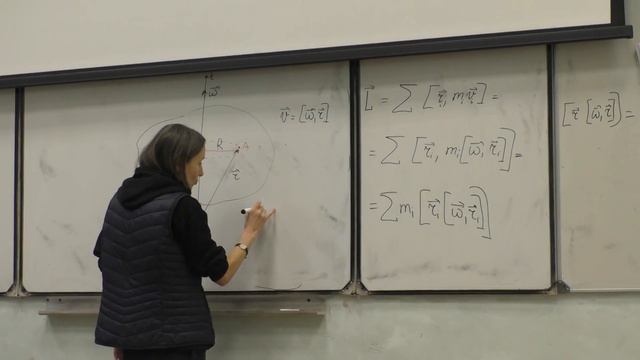 z
ω⃗
R
A
r⃗
v⃗ = [ω⃗, r⃗]
L⃗ = ∑ [r⃗ᵢ, mᵢv⃗ᵢ] =
= ∑ [r⃗ᵢ, mᵢ[ω⃗, r⃗ᵢ]] =
= ∑ mᵢ [r⃗ᵢ [ω⃗, r⃗ᵢ]]
[r⃗ [ω⃗, r⃗]] =